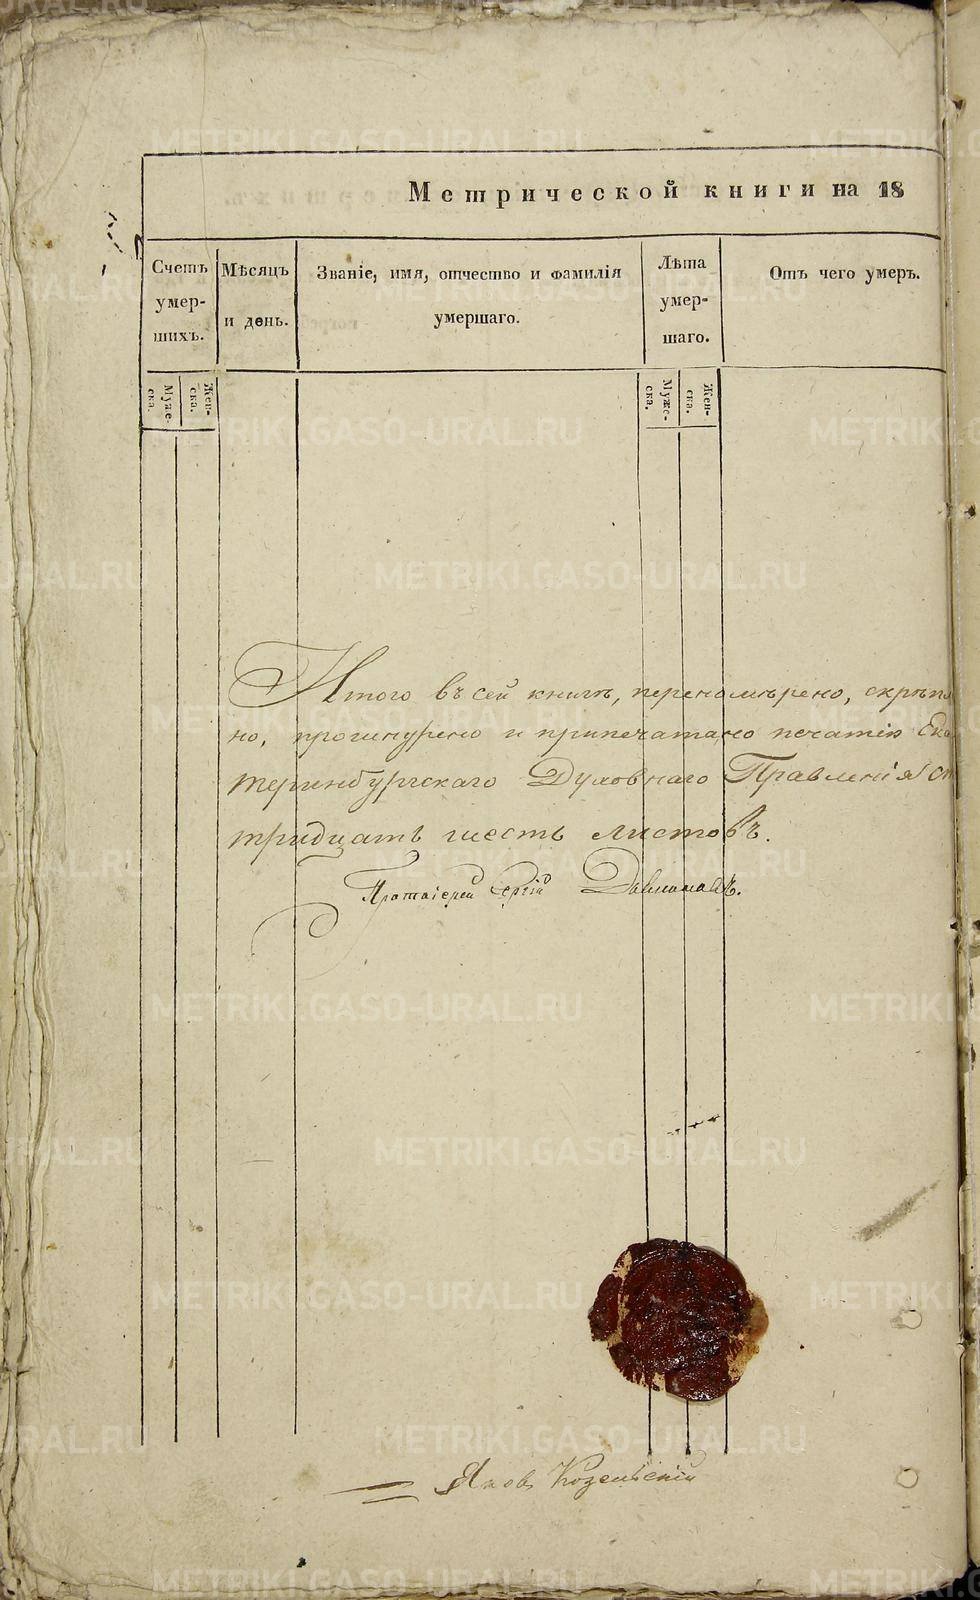 Метрической книги на 18
Счетъ умершихъ.
Мужеска.
Женска.
Мѣсяцъ и день.
Званіе, имя, отчество и фамилія
умершаго.
Лѣта умершаго.
Мужеска.
Женска.
Отъ чего умеръ.
Итого въ сей книгѣ, переномѣрено, скрѣпле
но, прошнурено и припечатано печатію Ека
теринбургскаго Духовнаго Правленія ст
тридцать шесть листовъ.
Протоіерей Сергій
Яковъ
METRIKI.GASO-URAL.RU